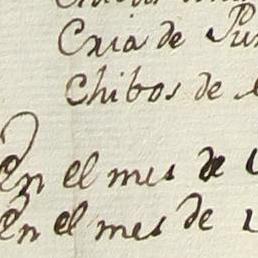 Cria de
Chibos de
En el mes de
En el mes de